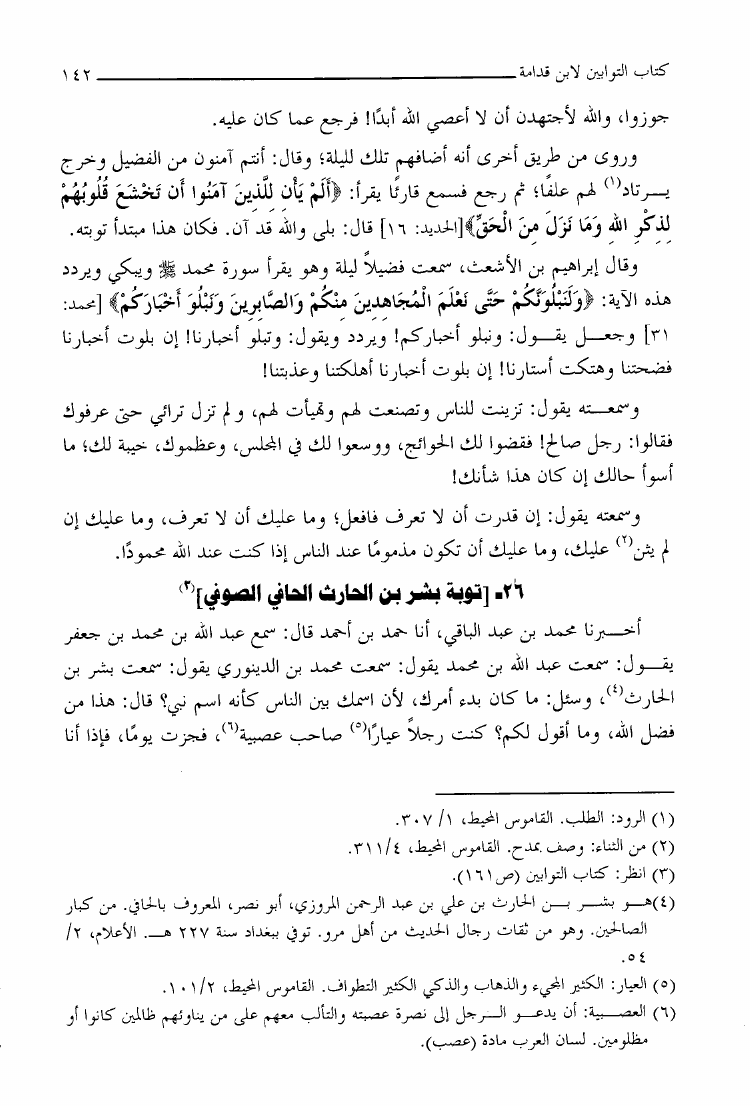 كتاب التوابين لابن قدامة ١٤٢
جوزوا، والله لأجتهدن أن لا أعصي الله أبدًا! فرجع عما كان عليه.
وروى من طريق أخرى أنه أضافهم تلك لليلة؛ وقال: أنتم آمنون من الفضيل وخرج
يـــرتاد(١) لهم علفًا؛ ثم رجع فسمع قارئًا يقرأ: ﴿أَلَمْ يَأْنِ لِلَّذِينَ آمَنُوا أَن تَخْشَعَ قُلُوبُهُمْ
لِذِكْرِ اللهِ وَمَا نَزَلَ مِنَ الْحَقِّ﴾[الحديد: ١٦] قال: بلى والله قد آن. فكان هذا مبتدأ توبته.
وقال إبراهيم بن الأشعث، سمعت فضيلاً ليلة وهو يقرأ سورة محمد ﷺ ويبكي ويردد
هذه الآية: ﴿وَلَنَبْلُوَنَّكُمْ حَتَّى نَعْلَمَ الْمُجَاهِدِينَ مِنكُمْ وَالصَّابِرِينَ وَنَبْلُوَ أَخْبَارَكُمْ﴾ [محمد:
٣١] وجعـــل يقـــول: ونبلو أخباركم! ويردد ويقول: وتبلو أخبارنا! إن بلوت أخبارنا
فضحتنا وهتكت أستارنا! إن بلوت أخبارنا أهلكتنا وعذبتنا!
وسمعـــته يقول: تزينت للناس وتصنعت لهم وتهيأت لهم، ولم تزل ترائي حتى عرفوك
فقالوا: رجل صالح! فقضوا لك الحوائج، ووسعوا لك في المجلس، وعظموك، خيبة لك؛ ما
أسوأ حالك إن كان هذا شأنك!
وسمعته يقول: إن قدرت أن لا تعرف فافعل؛ وما عليك أن لا تعرف، وما عليك إن
لم يثن(٢) عليك، وما عليك أن تكون مذمومًا عند الناس إذا كنت عند الله محمودًا.
٢٦ـ [توبة بشر بن الحارث الحافي الصوفي](٣)
أخـــبرنا محمد بن عبد الباقي، أنا حمد بن أحمد قال: سمع عبد الله بن محمد بن جعفر
يقـــول: سمعت عبد الله بن محمد يقول: سمعت محمد بن الدينوري يقول: سمعت بشر بن
الحارث(٤)، وسئل: ما كان بدء أمرك، لأن اسمك بين الناس كأنه اسم نبي؟ قال: هذا من
فضل الله، وما أقول لكم؟ كنت رجلاً عيارًا(٥) صاحب عصبية(٦)، فجزت يومًا، فإذا أنا
(١) الرود: الطلب. القاموس المحيط، ١/ ٣٠٧.
(٢) من الثناء: وصف بمدح. القاموس المحيط، ٣١١/٤.
(٣) انظر: كتاب التوابين (ص١٦١).
(٤)هـــو بشـــر بـــن الحارث بن علي بن عبد الرحمن المروزي، أبو نصر، المعروف بالحافي. من كبار
الصالحين. وهو من ثقات رجال الحديث من أهل مرو. توفي ببغداد سنة ٢٢٧ هـــ. الأعلام، ٢/
٥٤.
(٥) العيار: الكثير المجيء والذهاب والذكي الكثير التطواف. القاموس المحيط، ١٠١/٢.
(٦) العصـــبية: أن يدعـــو الـــرجل إلى نصرة عصبته والتألب معهم على من يناوئهم ظالمين كانوا أو
مظلومين. لسان العرب مادة (عصب).